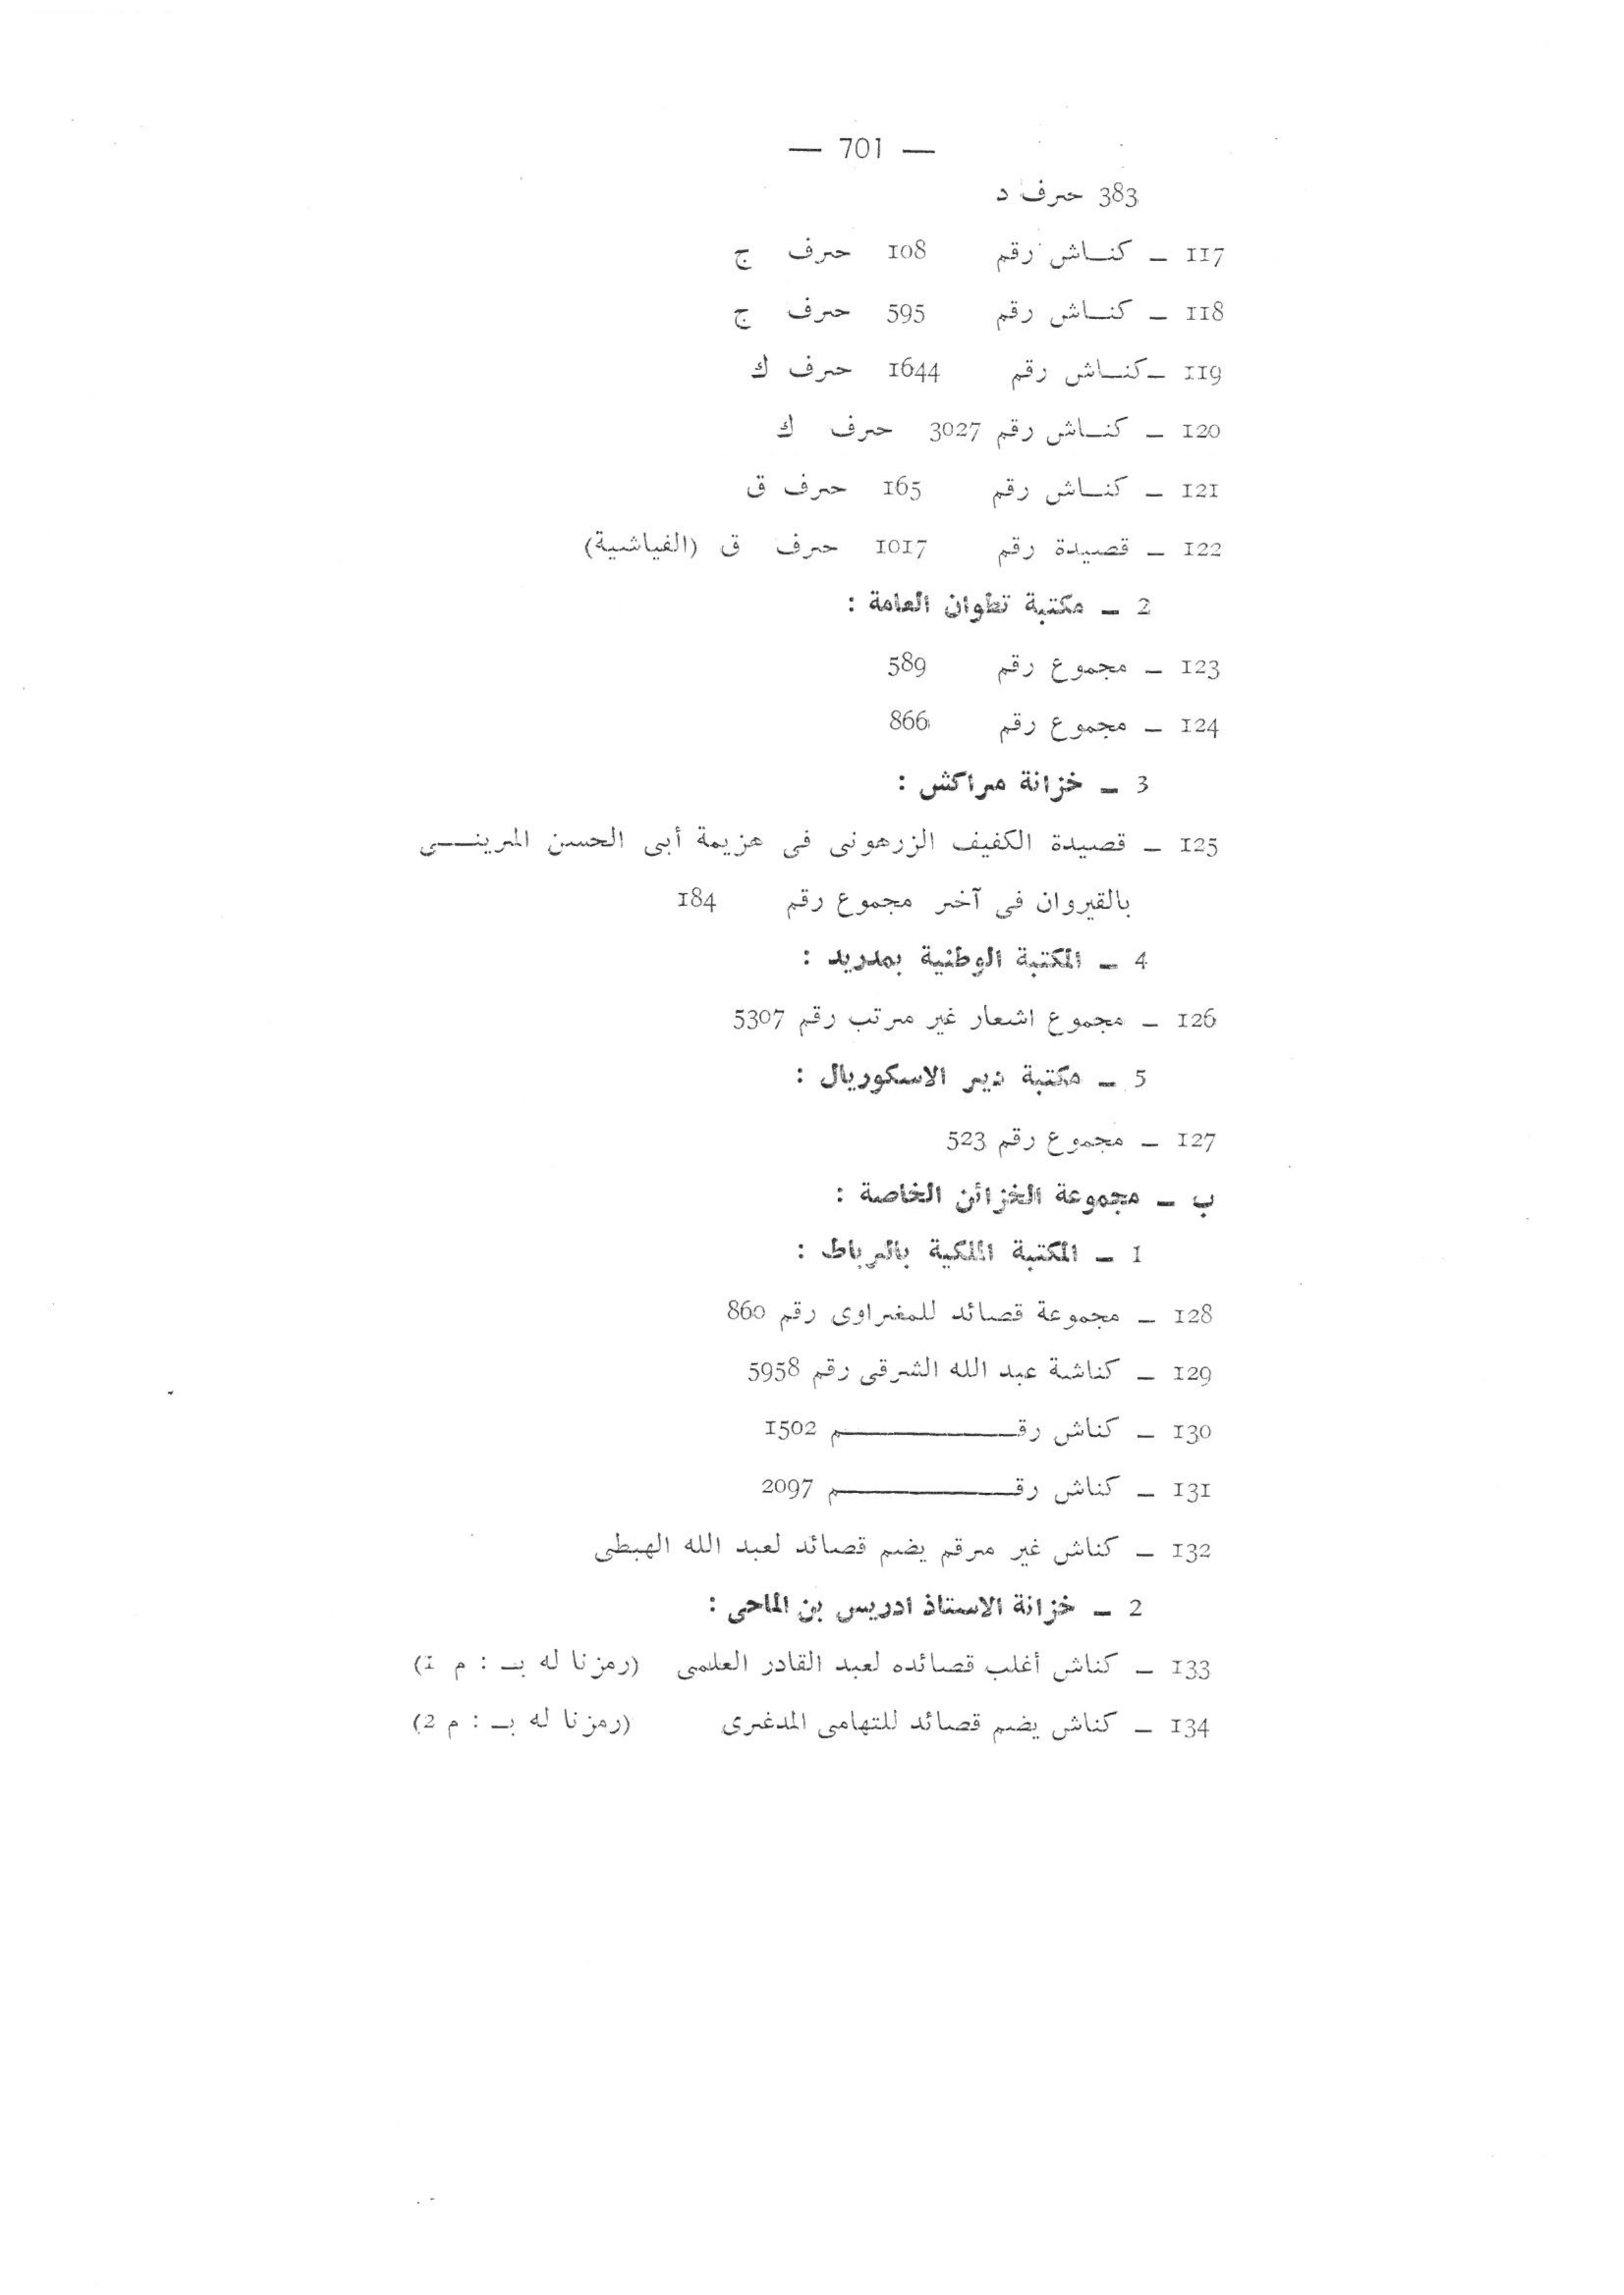 — 701 —
383 حرف د
117 — كنــاش رقم 108 حرف ج
118 — كنــاش رقم 595 حرف ج
119 —كنــاش رقم 1644 حرف ك
120 — كنــاش رقم 3027 حرف ك
121 — كنــاش رقم 165 حرف ق
122 — قصيدة رقم 1017 حرف ق (الفياشية)
2 — مكتبة تطوان العامة :
123 — مجموع رقم 589
124 — مجموع رقم 866
3 — خزانة مراكش :
125 — قصيدة الكفيف الزرهونى فى هزيمة أبى الحسن المرينــــى
بالقيروان فى آخر مجموع رقم 184
4 — المكتبة الوطنية بمدريد :
126 — مجموع اشعار غير مرتب رقم 5307
5 — مكتبة دير الاسكوريال :
127 — مجموع رقم 523
ب — مجموعة الخزائن الخاصة :
1 — المكتبة الملكية بالرباط :
128 — مجموعة قصائد للمغراوى رقم 860
129 — كناشة عبد الله الشرقى رقم 5958
130 — كناش رقــــــــــــــم 1502
131 — كناش رقــــــــــــــم 2097
132 — كناش غير مرقم يضم قصائد لعبد الله الهبطى
2 — خزانة الاستاذ ادريس بن الماحى :
133 — كناش أغلب قصائده لعبد القادر العلمى (رمزنا له بــ : م 1)
134 — كناش يضم قصائد للتهامى المدغرى (رمزنا له بــ : م 2)